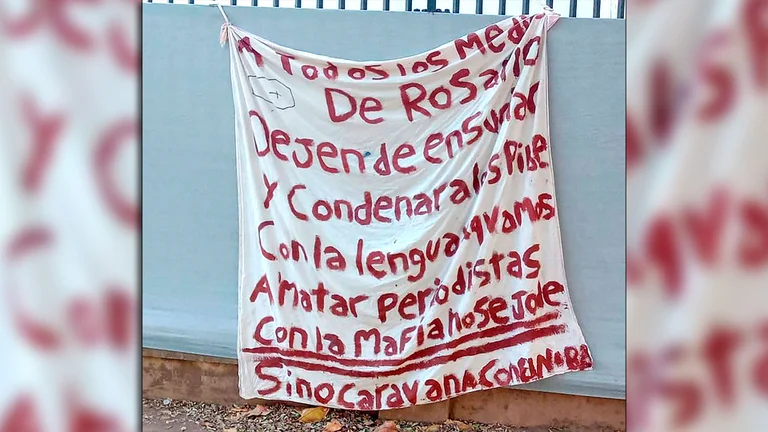 A TODOS LOS MED
DE ROSARIO
DEJEN DE ENSUSIAR
Y CONDENAR A LOS PIBE
CON LA LENGUA XQ VAMOS
A MATAR PERIODISTAS
CON LA MAFIA NO SE JODE
SINO CARAVANA